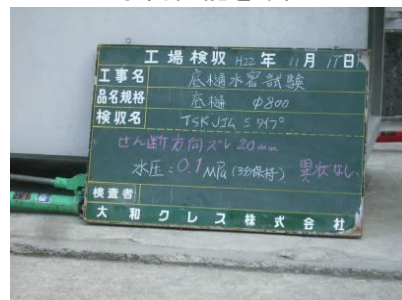 工場検収 H22年 11月 17日
工事名 底樋水密試験
品名規格 底樋 φ800
検収名 TSKJ14 Sタイプ
せん断方向ズレ 20mm
水圧:0.1MPa(3分保持) 異状なし
検査者
大和クレス株式会社